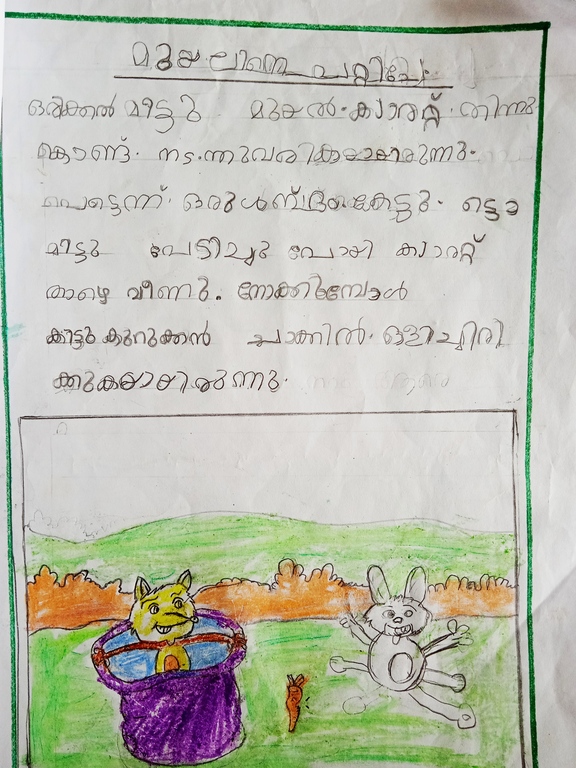 മുയലിനെ പറ്റിച്ചേ
ഒരിക്കൽ മിട്ടു മുയൽ കാരറ്റ് തിന്നു
കൊണ്ട് നടന്നുവരികയായിരുന്നു.
പെട്ടെന്ന് ഒരു ശബ്ദം കേട്ടു.
മിട്ടു പേടിച്ചു പോയി കാരറ്റ്
താഴെ വീണു. നോക്കിമ്പോൾ
കിട്ടു കുറുക്കൻ ചാക്കിൽ ഒളിച്ചിരി
ക്കുകയായിരുന്നു.